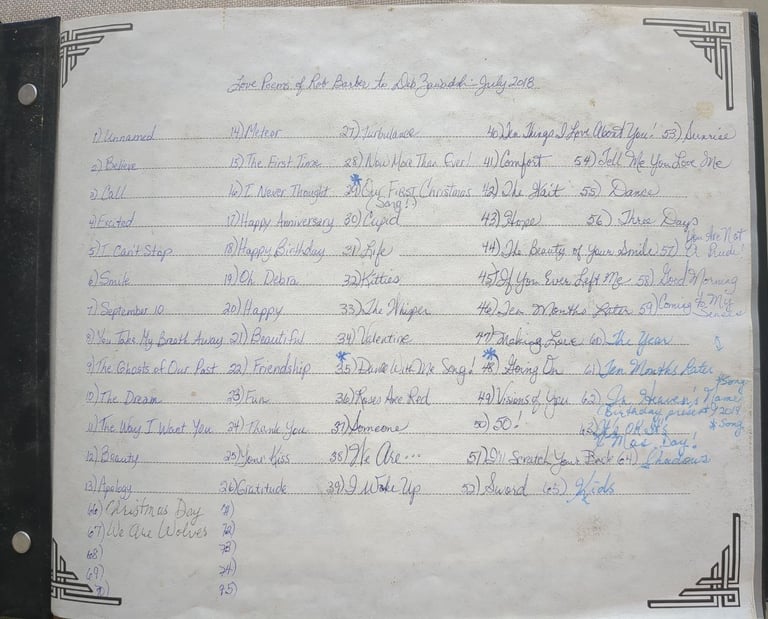 Love Poems of Rob Barber to Deb Zawadski - July 2018
1) Unnamed
2) Believe
3) Call
4) Excited
5) I Can't Stop
6) Smile
7) September 10
8) You Take My Breath Away
9) The Ghosts of Our Past
10) The Dream
11) The Way I Want You
12) Beauty
13) Apology
14) Meteor
15) The First Time
16) I Never Thought
17) Happy Anniversary
18) Happy Birthday
19) Oh Debra
20) Happy
21) Beautiful
22) Friendship
23) Fun
24) Thank You
25) Your Kiss
26) Gratitude
27) Turbulance
28) Now More Than Ever!
* 29) Our First Christmas
(Song!)
30) Cupid
31) Life
32) Kitties
33) The Whisper
34) Valentine
* 35) Dance With Me Song!
36) Roses Are Red
37) Someone
38) We Are...
39) I Woke Up
40) Ten Things I Love About You!
41) Comfort
42) The Wait
43) Hope
44) The Beauty of Your Smile
45) If You Ever Left Me
46) Ten Months Later
47) Making Love
* 48) Hang On
49) Visions of You
50) 50!
51) I'll Scratch Your Back
52) Sword
53) Sunrise
54) Tell Me You Love Me
55) Dance
56) Three Days
57) You Are Not
A Rude!
58) Good Morning
59) Coming to My
Senses
60) The Year
61) Ten Months Later
62) In Heaven's Name
* Song
(Birthday present) 2019
63) It's OK It's
X Mas Day!
* Song
64) Shadows
65) Kids
66) Christmas Day
67) We Are Wolves
68)
69)
70)
71)
72)
73)
74)
75)